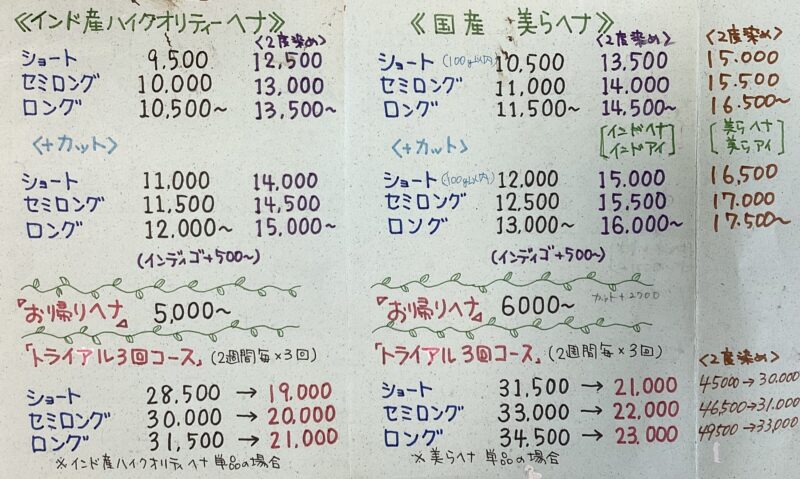 《インド産ハイクオリティーヘナ》
<2度染め>
ショート 9,500 12,500
セミロング 10,000 13,000
ロング 10,500~ 13,500~
<+カット>
ショート 11,000 14,000
セミロング 11,500 14,500
ロング 12,000~ 15,000~
(インディゴ+500~)
『お帰りヘナ』 5,000~
「トライアル3回コース」(2週間毎×3回)
ショート 28,500 → 19,000
セミロング 30,000 → 20,000
ロング 31,500 → 21,000
※インド産ハイクオリティヘナ単品の場合
《国産 美らヘナ》
<2度染め> <2度染め>
ショート(100g以内) 10,500 13,500 15.000
セミロング 11,000 14.000 15.500
ロング 11,500~ 14,500~ 16.500~
[インドヘナ インドアイ] [美らヘナ 美らアイ]
<+カット>
ショート(100g以内) 12,000 15.000 16,500
セミロング 12,500 15,500 17.000
ロング 13,000~ 16.000~ 17.500~
(インディゴ+500~)
『お帰りヘナ』 6000~ カット+2700
「トライアル3回コース」(2週間毎×3回) <2度染め>
ショート 31,500 → 21,000 45000→30.000
セミロング 33,000 → 22,000 46,500→31.000
ロング 34,500 → 23.000 49500→33,000
※美らヘナ単品の場合